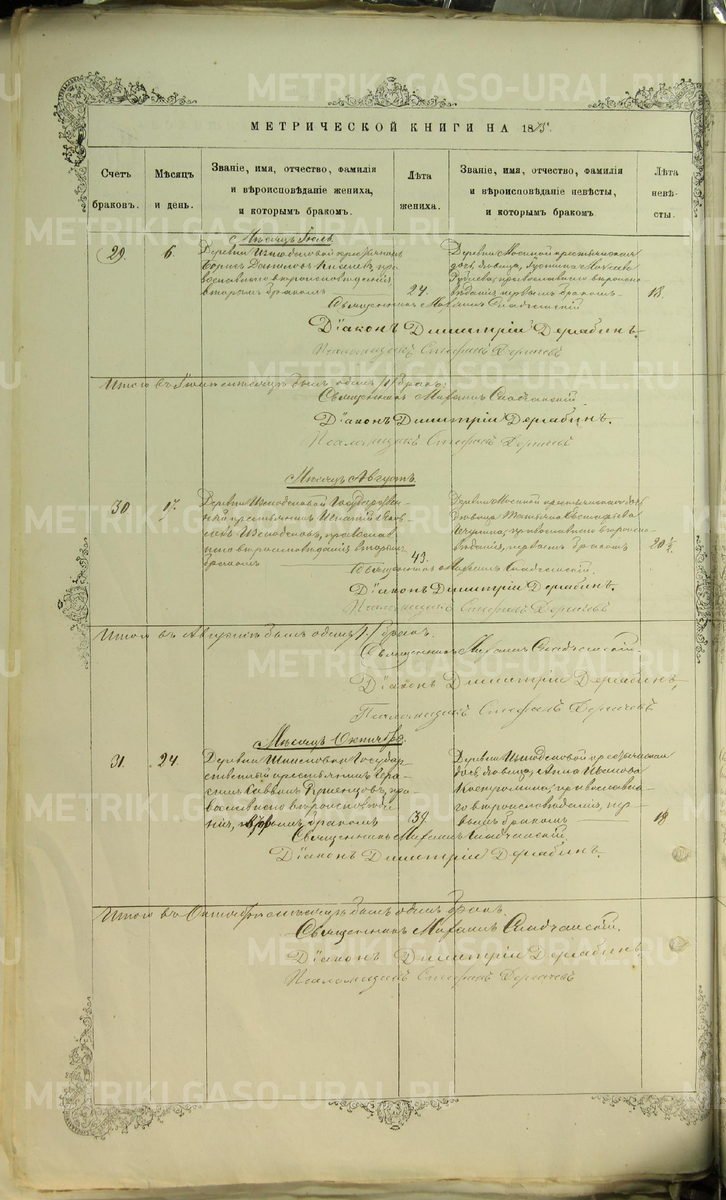 МЕТРИЧЕСКОЙ КНИГИ НА 1875.
Счетъ
браковъ.
Мѣсяцъ
и день.
Званіе, имя, отчество, фамилія
и вѣроисповѣданіе жениха,
и которымъ бракомъ.
Лѣта
жениха.
Званіе, имя, отчество, фамилія
и вѣроисповѣданіе невѣсты,
и которымъ бракомъ
Лѣта
невѣ-
сты.
Мѣсяцъ Іюль.
29. 6.
Деревни крестьянинъ
Даниловъ пра-
вославнаго вѣроисповѣданія
вторымъ бракомъ
24.
Деревни Мосиной крестьянская
дочь, дѣвица,
православнаго вѣроиспо-
вѣданія первымъ бракомъ
18.
Священникъ Михаилъ
Діаконъ Димитрій Дерябинъ.
Псаломщикъ Стефанъ
Итого въ Іюлѣ мѣсяцѣ былъ одинъ бракъ.
Священникъ Михаилъ
Діаконъ Димитрій Дерябинъ.
Псаломщикъ Стефанъ
Мѣсяцъ Августъ.
30. 17.
Деревни Государствен-
ный крестьянинъ Игнатій
православ-
наго вѣроисповѣданія вторымъ
бракомъ
43.
Деревни Мосиной крестьянская дочь
дѣвица Татьяна
православнаго вѣроиспо-
вѣданія, первымъ бракомъ
20½.
Священникъ Михаилъ
Діаконъ Димитрій Дерябинъ.
Псаломщикъ Стефанъ
Итого въ Августѣ былъ одинъ бракъ.
Священникъ Михаилъ
Діаконъ Димитрій Дерябинъ,
Псаломщикъ Стефанъ
Мѣсяцъ Октябрь.
31. 24.
Деревни Государ-
ственный крестьянинъ Гера-
симъ Савинъ пра-
вославнаго вѣроисповѣда-
нія, вторымъ бракомъ
39.
Деревни крестьянская
дочь дѣвица, Анна Иванова
православна-
го вѣроисповѣданія, пер-
вымъ бракомъ
18
Священникъ Михаилъ
Діаконъ Димитрій Дерябинъ.
Итого въ Октябрѣ мѣсяцѣ былъ одинъ бракъ.
Священникъ Михаилъ
Діаконъ Димитрій Дерябинъ
Псаломщикъ Стефанъ
METRIKI.GASO-URAL.RU